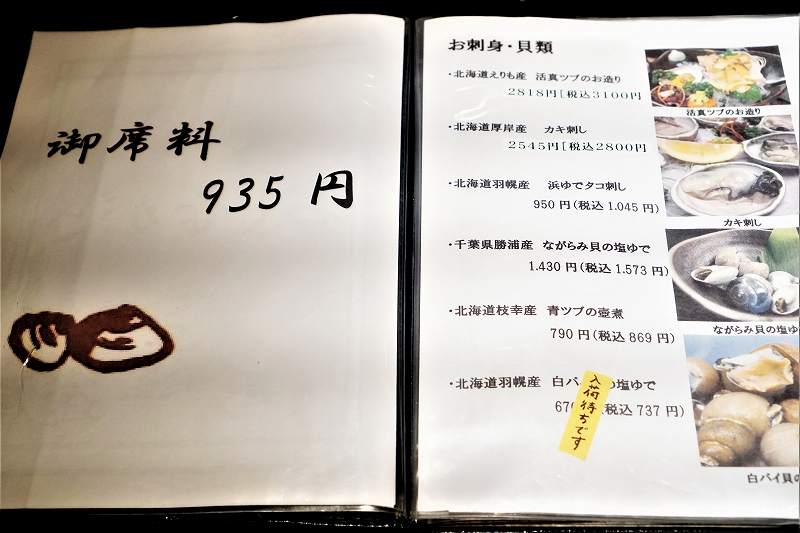 御席料
935円
お刺身・貝類
・北海道えりも産 活真ツブのお造り
2818円[税込3100円
・北海道厚岸産 カキ刺し
2545円[税込2800円
・北海道羽幌産 浜ゆでタコ刺し
950円(税込1.045円)
・千葉県勝浦産 ながらみ貝の塩ゆで
1.430円(税込1.573円)
・北海道枝幸産 青ツブの壺煮
790円(税込869円)
・北海道羽幌産 白バ の塩ゆで
67 (税込737円)
入荷待ちです
活真ツブのお造り
カキ刺し
ながらみ貝の塩ゆ
白バイ貝の